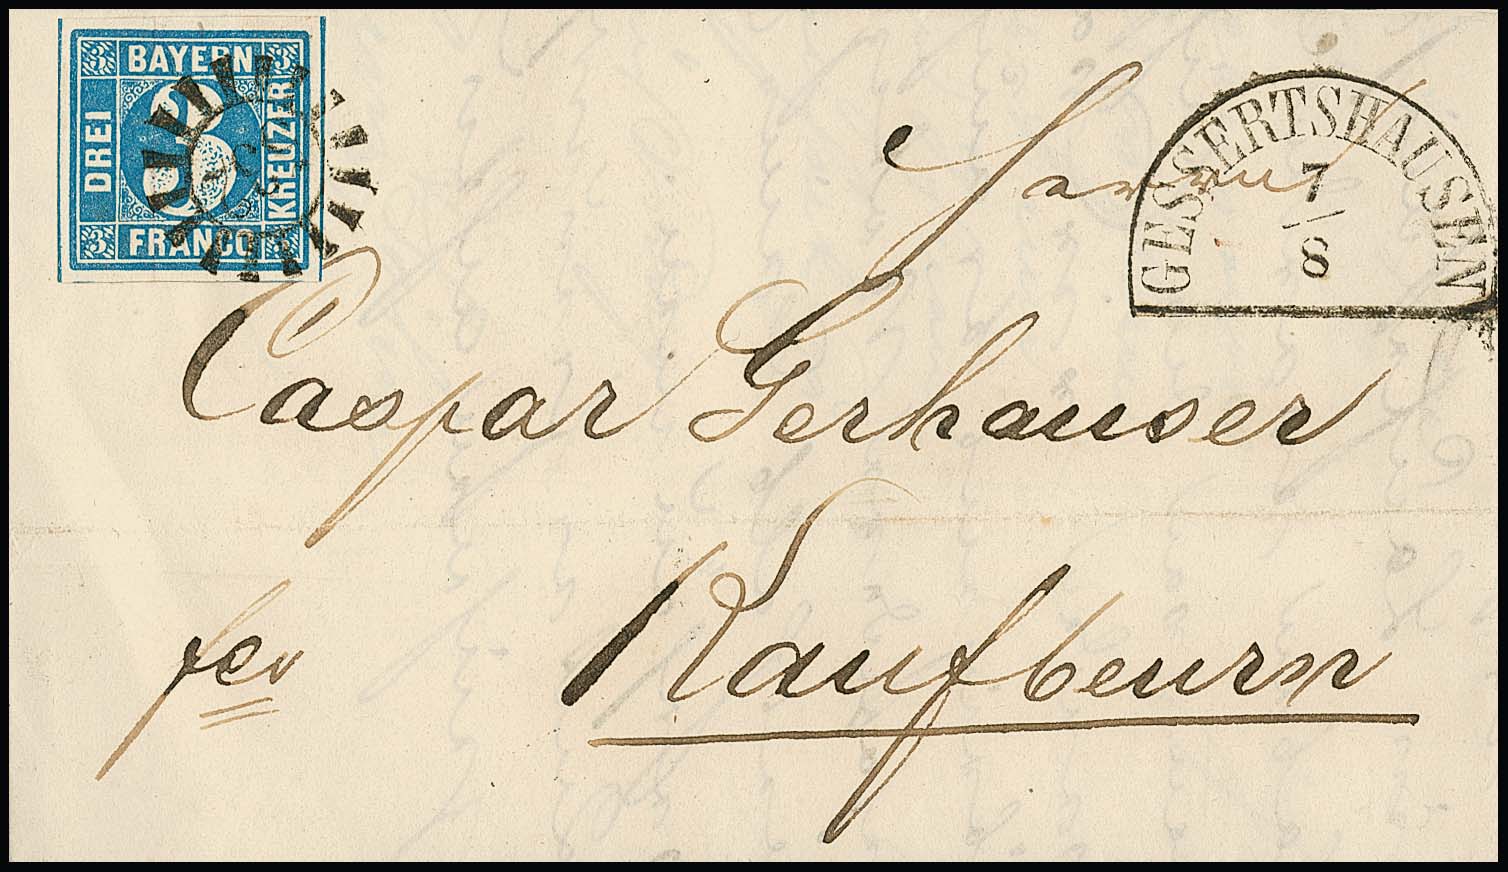 3 BAYERN 3
DREI
3
KREUZER
3 FRANCO 3
GESSERTSHAUSEN
7/8
Herrn
Caspar Gerhauser
fco Kaufbeurn